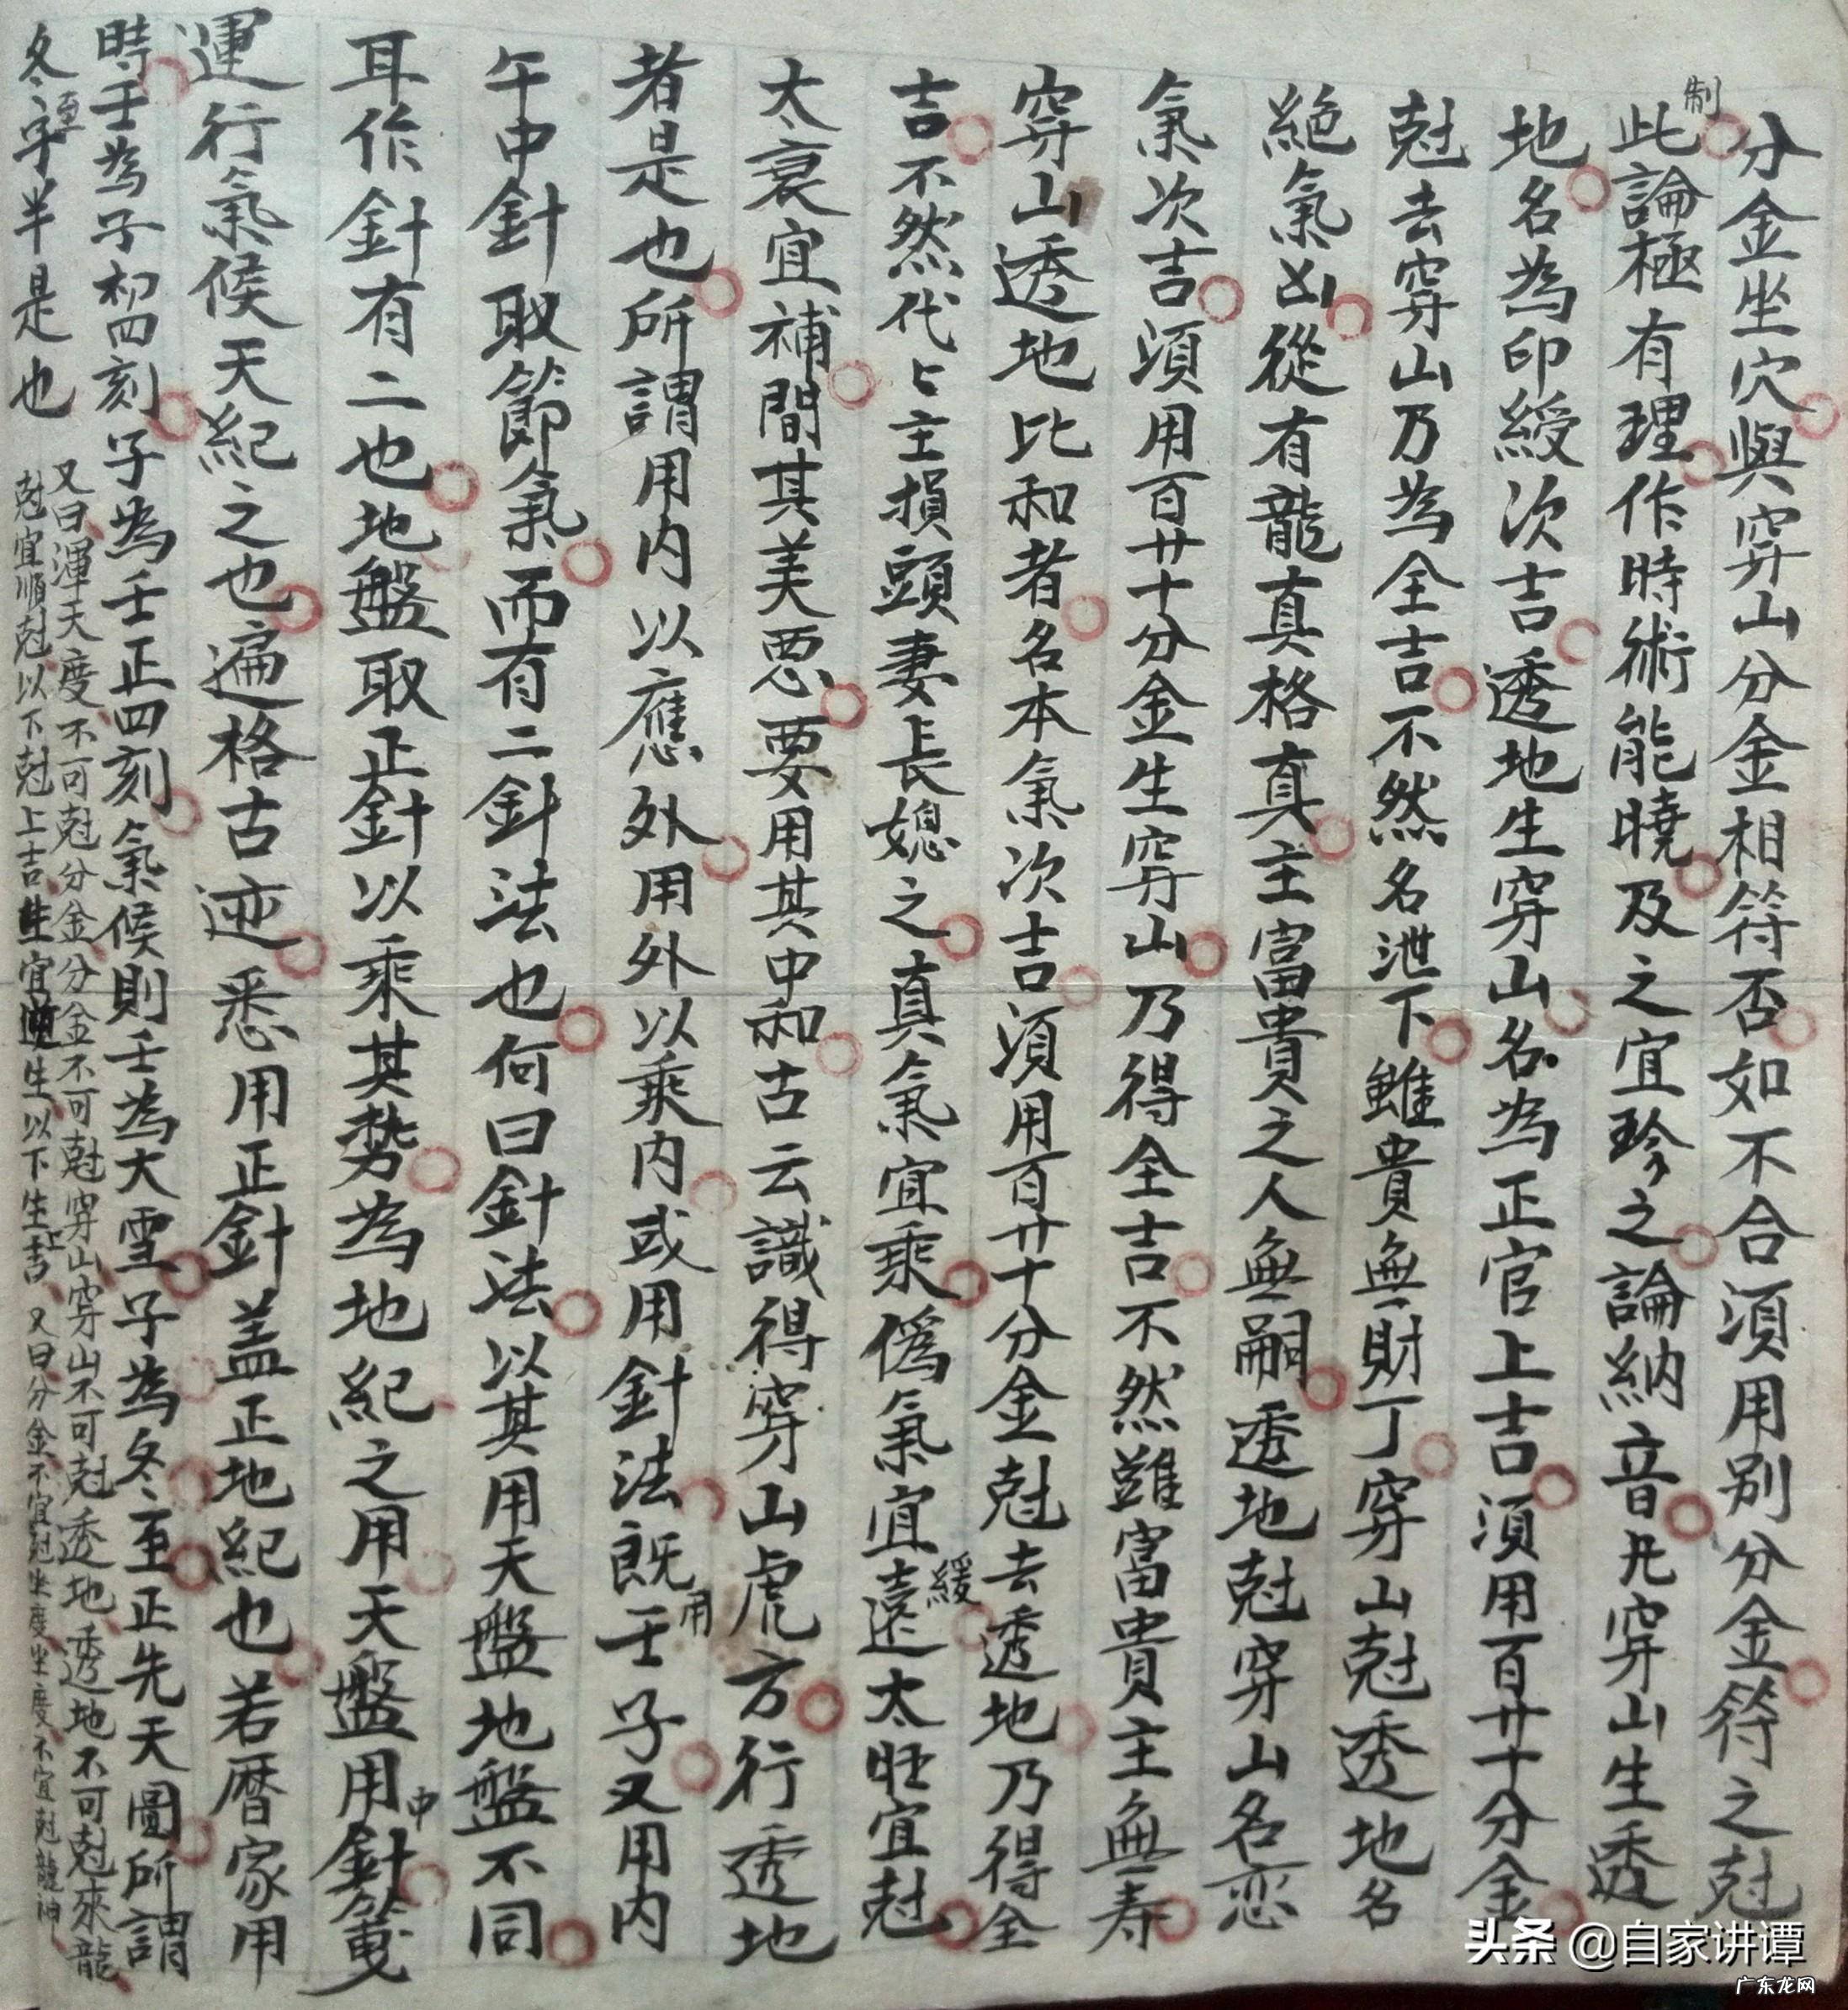 分金坐穴與穿山分金相符否如不合須用別分金符之尅
制
此論極有理作時術能曉及之宜珍之論納音凡穿山生透
地名為印綬次吉透地生穿山名為正官上吉須用百廿十分金
尅去穿山乃為全吉不然名泄下雖貴無財丁穿山尅透地名
絕氣凶從有龍真格真主富貴之人無嗣透地尅穿山名恋
氣次吉須用百廿十分金生穿山乃得全吉不然雖富貴主無寿
穿山透地比和者名本氣次吉須用百廿十分金尅去透地乃得全
吉不然代占主損頭妻長媳之真氣宜乘偽氣宜遠太旺宜尅
緩
太衰宜補間其美悪要用其中和古云識得穿山虎方行透地
者是也所謂用内以應外用外以乘内或用針法既壬子又用内
用
午中針取節氣而有二針法也何曰針法以其用天盤地盤不同
耳作針有二也地盤取正針以乘其势為地紀之用天盤用針
中
運行氣候天紀之也遍格古迹悉用正針盖正地紀也若暦家用
時壬為子初四刻子為壬正四刻氣候則壬為大雪子為冬至正先天圖所謂
冬子半是也
至
又曰渾天度不可尅分金分金不可尅穿山穿山不可尅透地透地不可尅來龍
尅宜順尅以下尅上吉生宜生以下生上吉又曰分金不宜尅坐度坐度不宜尅龍神
头条 @自家讲谭
广东龙网